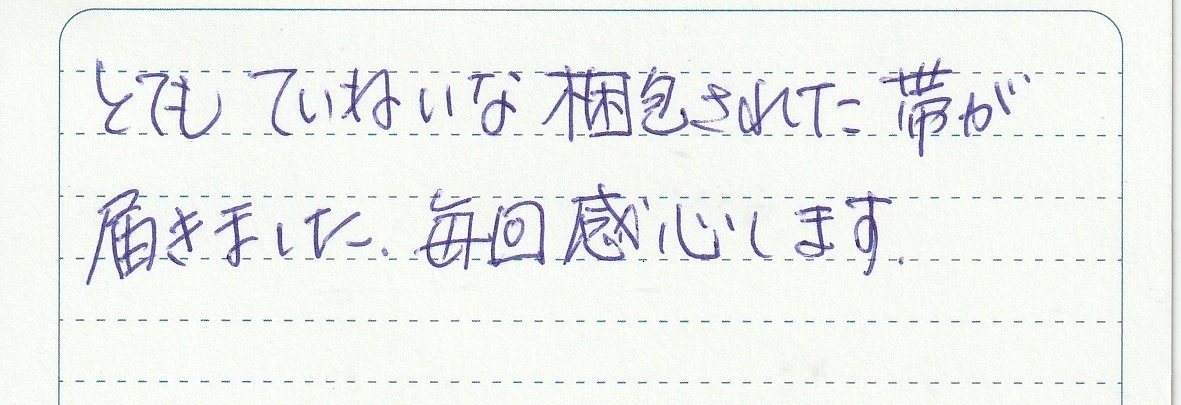 とても ていねいな 梱包された 帯が
届きました. 毎回 感心します.